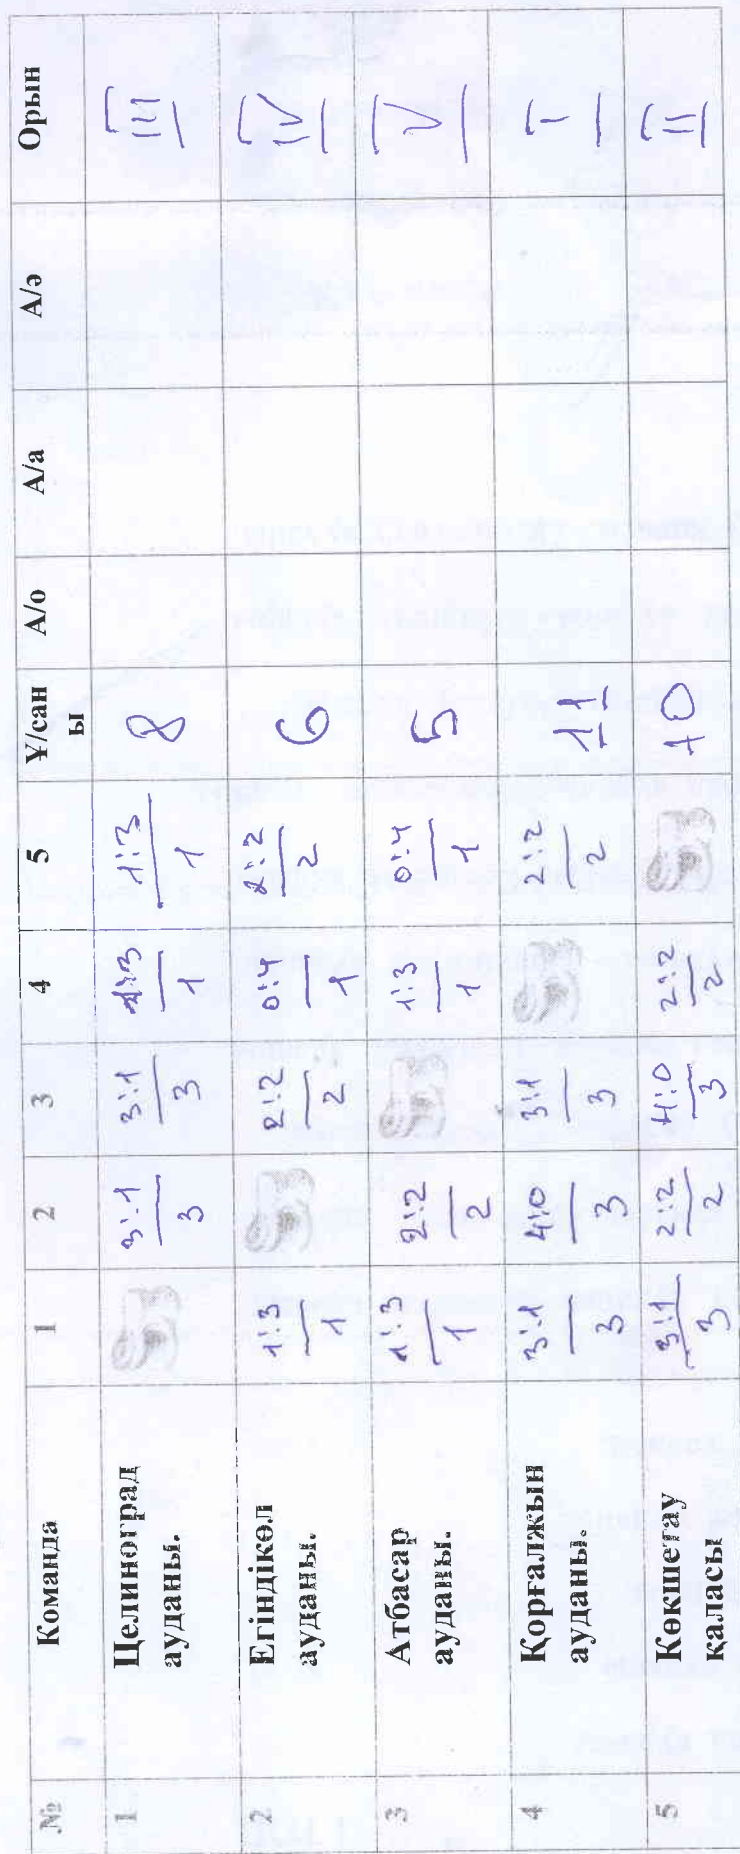 № Команда 1 2 3 4 5 Ұ/сан
ы А/о А/а А/ә Орын
1 Целиноград
ауданы. 3:1
3 3:1
3 1:3
1 1:3
1 8 III
2 Егіндікөл
ауданы. 1:3
1 2:2
2 0:4
1 2:2
2 6 IV
3 Атбасар
ауданы. 1:3
1 2:2
2 1:3
1 0:4
1 5 V
4 Қорғалжын
ауданы. 3:1
3 4:0
3 3:1
3 2:2
2 11 I
5 Көкшетау
қаласы 3:1
3 2:2
2 4:0
3 2:2
2 10 II